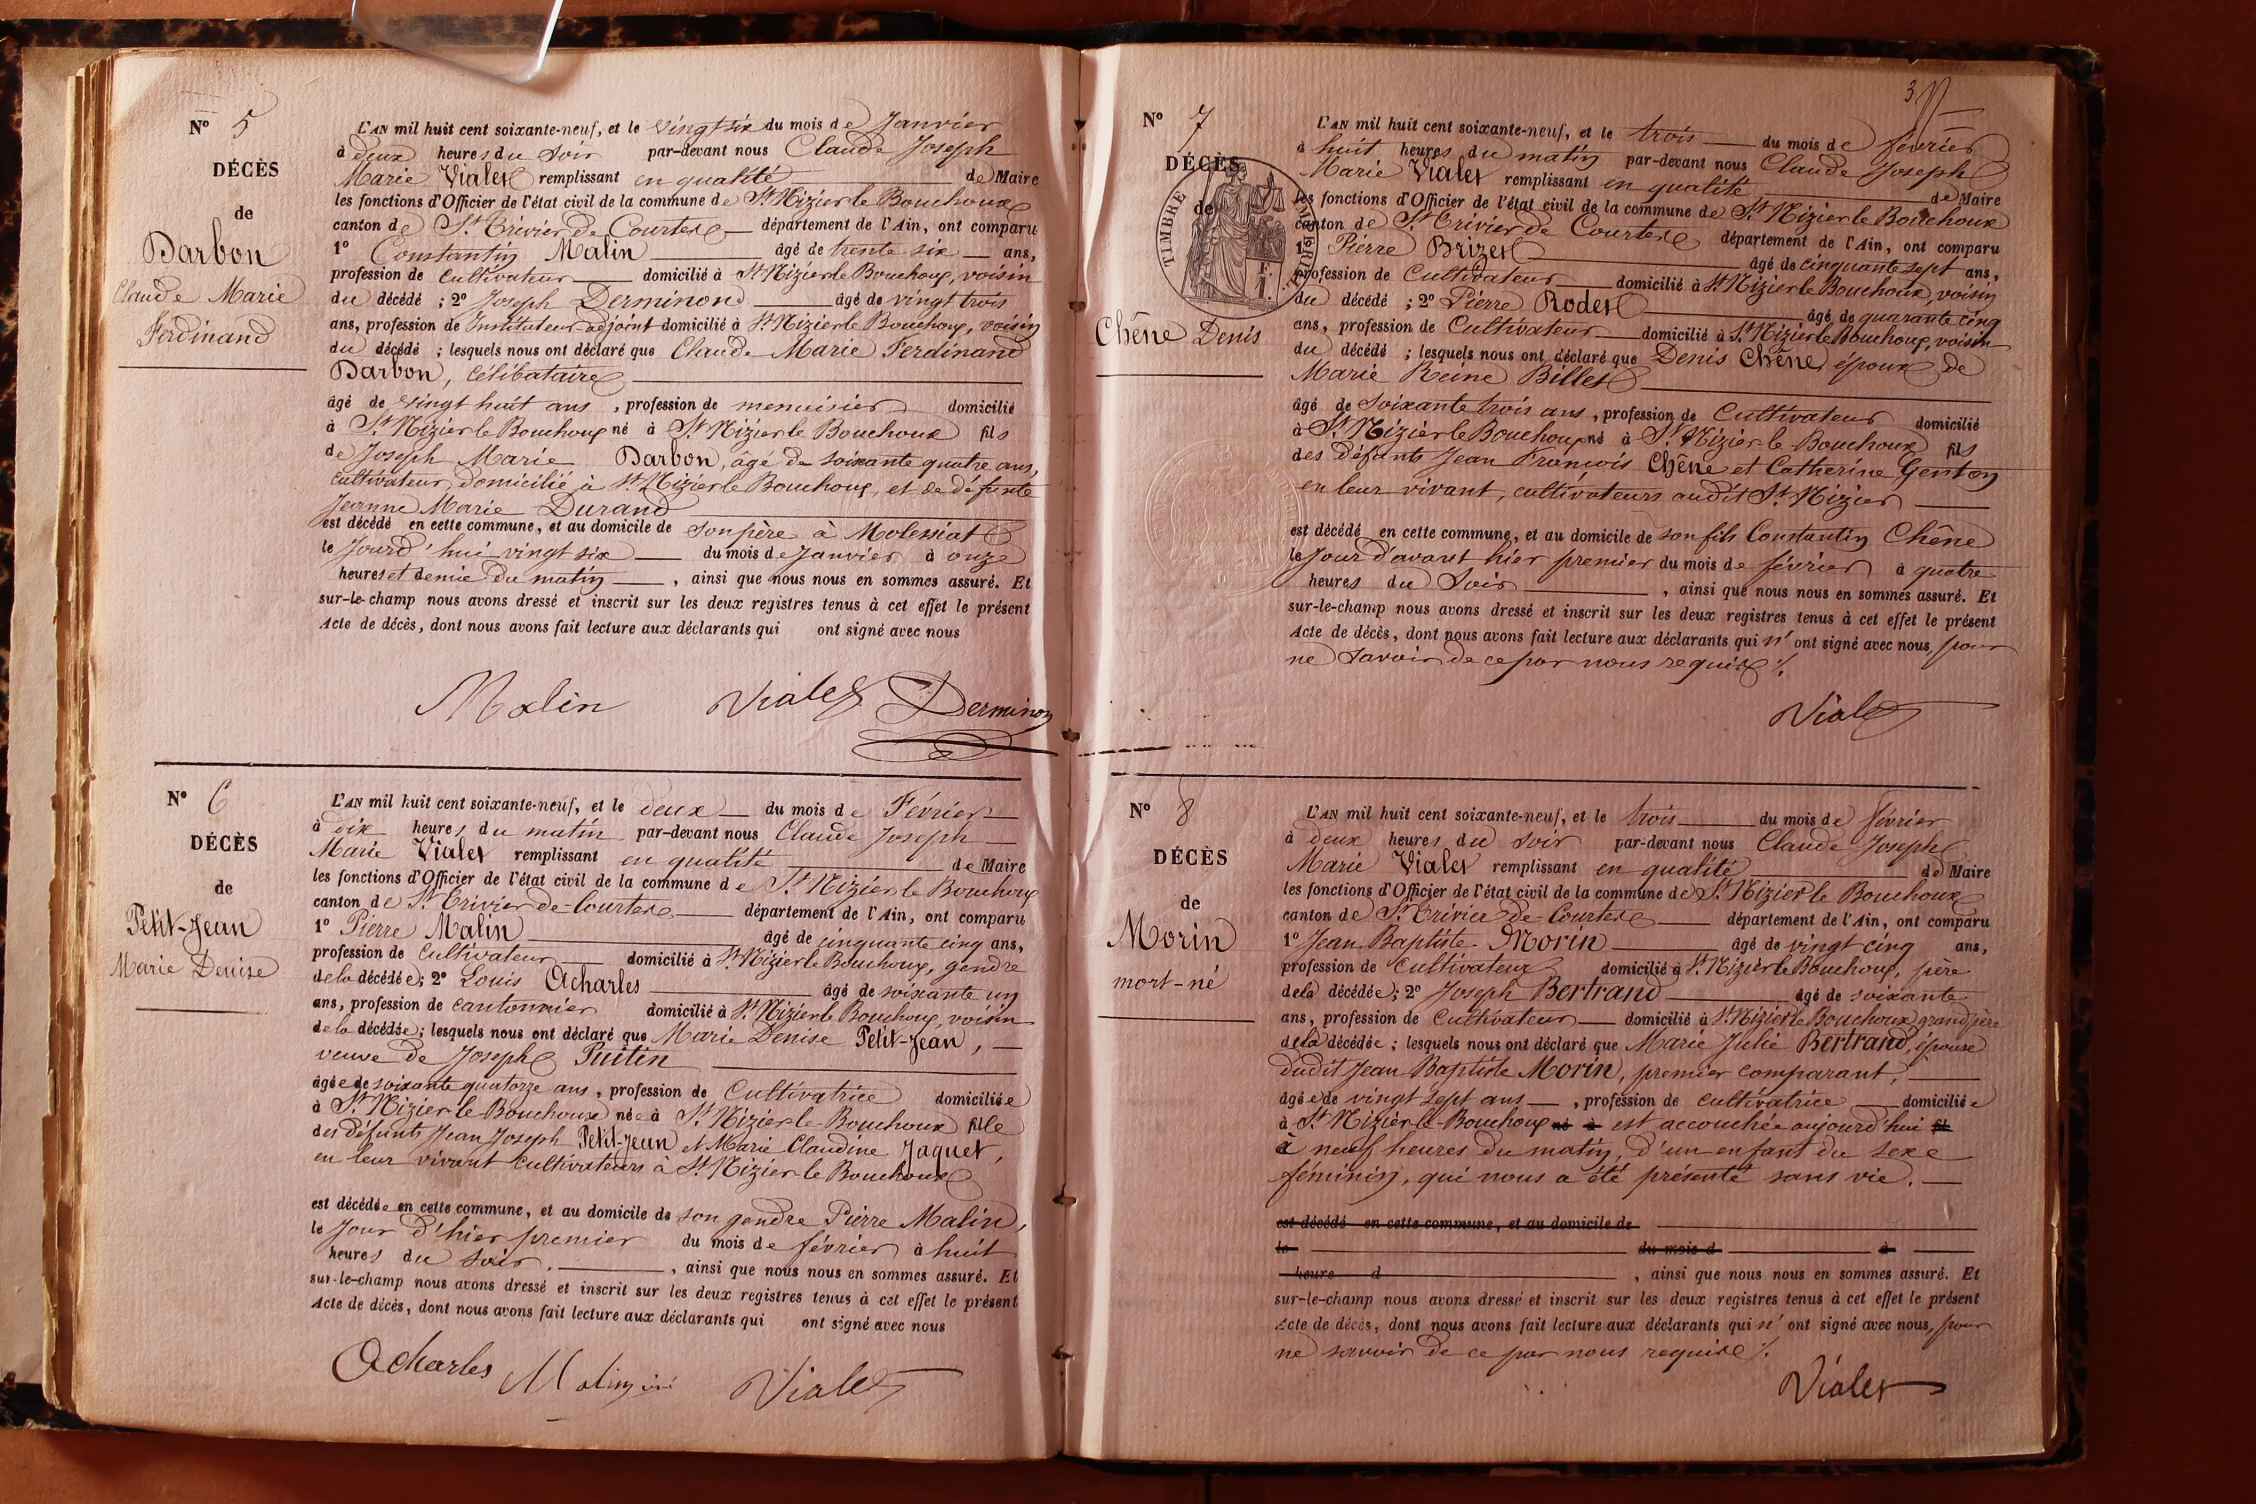 N° 5
DÉCÈS
de
Darbon
Claude Marie
Ferdinand
L'AN mil huit cent soixante-neuf, et le vingt six du mois de Janvier
à deux heures du soir par-devant nous Claude Joseph
Marie Vialet remplissant en qualité de Maire
les fonctions d'Officier de l'état civil de la commune de St Nizier le Bouchoux
canton de St Trivier de Courtes département de l'Ain, ont comparu
1° Constantin Malin âgé de trente six ans,
profession de Cultivateur domicilié à St Nizier le Bouchoux, voisin
du décédé ; 2° Joseph Derminond âgé de vingt trois
ans, profession de Instituteur adjoint domicilié à St Nizier le Bouchoux, voisin
du décédé ; lesquels nous ont déclaré que Claude Marie Ferdinand
Darbon, célibataire
âgé de vingt huit ans, profession de menuisier domicilié
à St Nizier le Bouchoux né à St Nizier le Bouchoux fils
de Joseph Marie Darbon, âgé de soixante quatre ans,
cultivateur domicilié à St Nizier le Bouchoux, et de défunte
Jeanne Marie Durand
est décédé en cette commune, et au domicile de son père à Molessiat
le Jourd'hui vingt six du mois de Janvier à onze
heures et demie du matin, ainsi que nous nous en sommes assuré. Et
sur-le-champ nous avons dressé et inscrit sur les deux registres tenus à cet effet le présent
Acte de décès, dont nous avons fait lecture aux déclarants qui ont signé avec nous
Malin Vialet Derminon
N° 6
DÉCÈS
de
Petit-Jean
Marie Denise
L'AN mil huit cent soixante-neuf, et le deux du mois de Février
à dix heures du matin par-devant nous Claude Joseph
Marie Vialet remplissant en qualité de Maire
les fonctions d'Officier de l'état civil de la commune de St Nizier le Bouchoux
canton de St Trivier de Courtes département de l'Ain, ont comparu
1° Pierre Malin âgé de cinquante cinq ans,
profession de Cultivateur domicilié à St Nizier le Bouchoux, gendre
de la décédée; 2° Louis Acharles âgé de soixante un
ans, profession de cantonnier domicilié à St Nizier le Bouchoux, voisin
de la décédée; lesquels nous ont déclaré que Marie Denise Petit-Jean,
veuve de Joseph Puitin
âgée de soixante quatorze ans, profession de Cultivatrice domiciliée
à St Nizier le Bouchoux née à St Nizier le Bouchoux fille
des défunts Jean Joseph Petit-Jean et Marie Claudine Jaquet,
en leur vivant cultivateurs à St Nizier le Bouchoux
est décédée en cette commune, et au domicile de son gendre Pierre Malin,
le Jour d'hier premier du mois de février à huit
heures du soir., ainsi que nous nous en sommes assuré. Et
sur-le-champ nous avons dressé et inscrit sur les deux registres tenus à cet effet le présent
Acte de décès, dont nous avons fait lecture aux déclarants qui ont signé avec nous
Acharles Malin Vialet
3
N° 7
DÉCÈS
de
TIMBRE IMPÉRIAL
Chêne Denis
L'AN mil huit cent soixante-neuf, et le trois du mois de février
à huit heures du matin par-devant nous Claude Joseph
Marie Vialet remplissant en qualité de Maire
les fonctions d'Officier de l'état civil de la commune de St Nizier le Bouchoux
canton de St Trivier de Courtes département de l'Ain, ont comparu
1° Pierre Brizet âgé de cinquante sept ans,
profession de Cultivateur domicilié à St Nizier le Bouchoux, voisin
du décédé ; 2° Pierre Rodet âgé de quarante cinq
ans, profession de Cultivateur domicilié à St Nizier le Bouchoux, voisin
du décédé ; lesquels nous ont déclaré que Denis Chêne époux de
Marie Reine Billet
âgé de soixante trois ans, profession de Cultivateur domicilié
à St Nizier le Bouchoux né à St Nizier le Bouchoux fils
des défunts Jean François Chêne et Catherine Genton
en leur vivant, cultivateurs audit St Nizier
est décédé en cette commune, et au domicile de son fils Constantin Chêne
le Jour d'avant hier premier du mois de février à quatre
heures du Soir, ainsi que nous nous en sommes assuré. Et
sur-le-champ nous avons dressé et inscrit sur les deux registres tenus à cet effet le présent
Acte de décès, dont nous avons fait lecture aux déclarants qui n'ont signé avec nous, pour
ne savoir de ce par nous requis /.
Vialet
N° 8
DÉCÈS
de
Morin
mort-né
L'AN mil huit cent soixante-neuf, et le trois du mois de février
à deux heures du soir par-devant nous Claude Joseph
Marie Vialet remplissant en qualité de Maire
les fonctions d'Officier de l'état civil de la commune de St Nizier le Bouchoux
canton de St Trivier de Courtes département de l'Ain, ont comparu
1° Jean Baptiste Morin âgé de vingt cinq ans,
profession de Cultivateur domicilié à St Nizier le Bouchoux, père
de la décédée; 2° Joseph Bertrand âgé de soixante
ans, profession de Cultivateur domicilié à St Nizier le Bouchoux grand père
de la décédée; lesquels nous ont déclaré que Marie Julie Bertrand, épouse
dudit Jean Baptiste Morin, premier comparant,
âgée de vingt sept ans, profession de cultivatrice domiciliée
à St Nizier le Bouchoux né à est accouchée aujourd'hui fil
à neuf heures du matin, d'un enfant du sexe
féminin, qui nous a été présenté sans vie.
est décédé en cette commune, et au domicile de
le du mois d à
heure d, ainsi que nous nous en sommes assuré. Et
sur-le-champ nous avons dressé et inscrit sur les deux registres tenus à cet effet le présent
Acte de décès, dont nous avons fait lecture aux déclarants qui n'ont signé avec nous, pour
ne savoir de ce par nous requis /.
Vialet